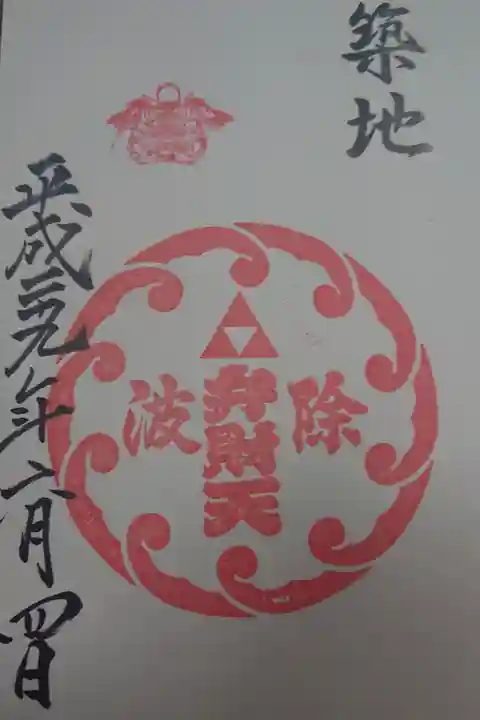 築地
除
弁財天
波
平成二九年六月四日